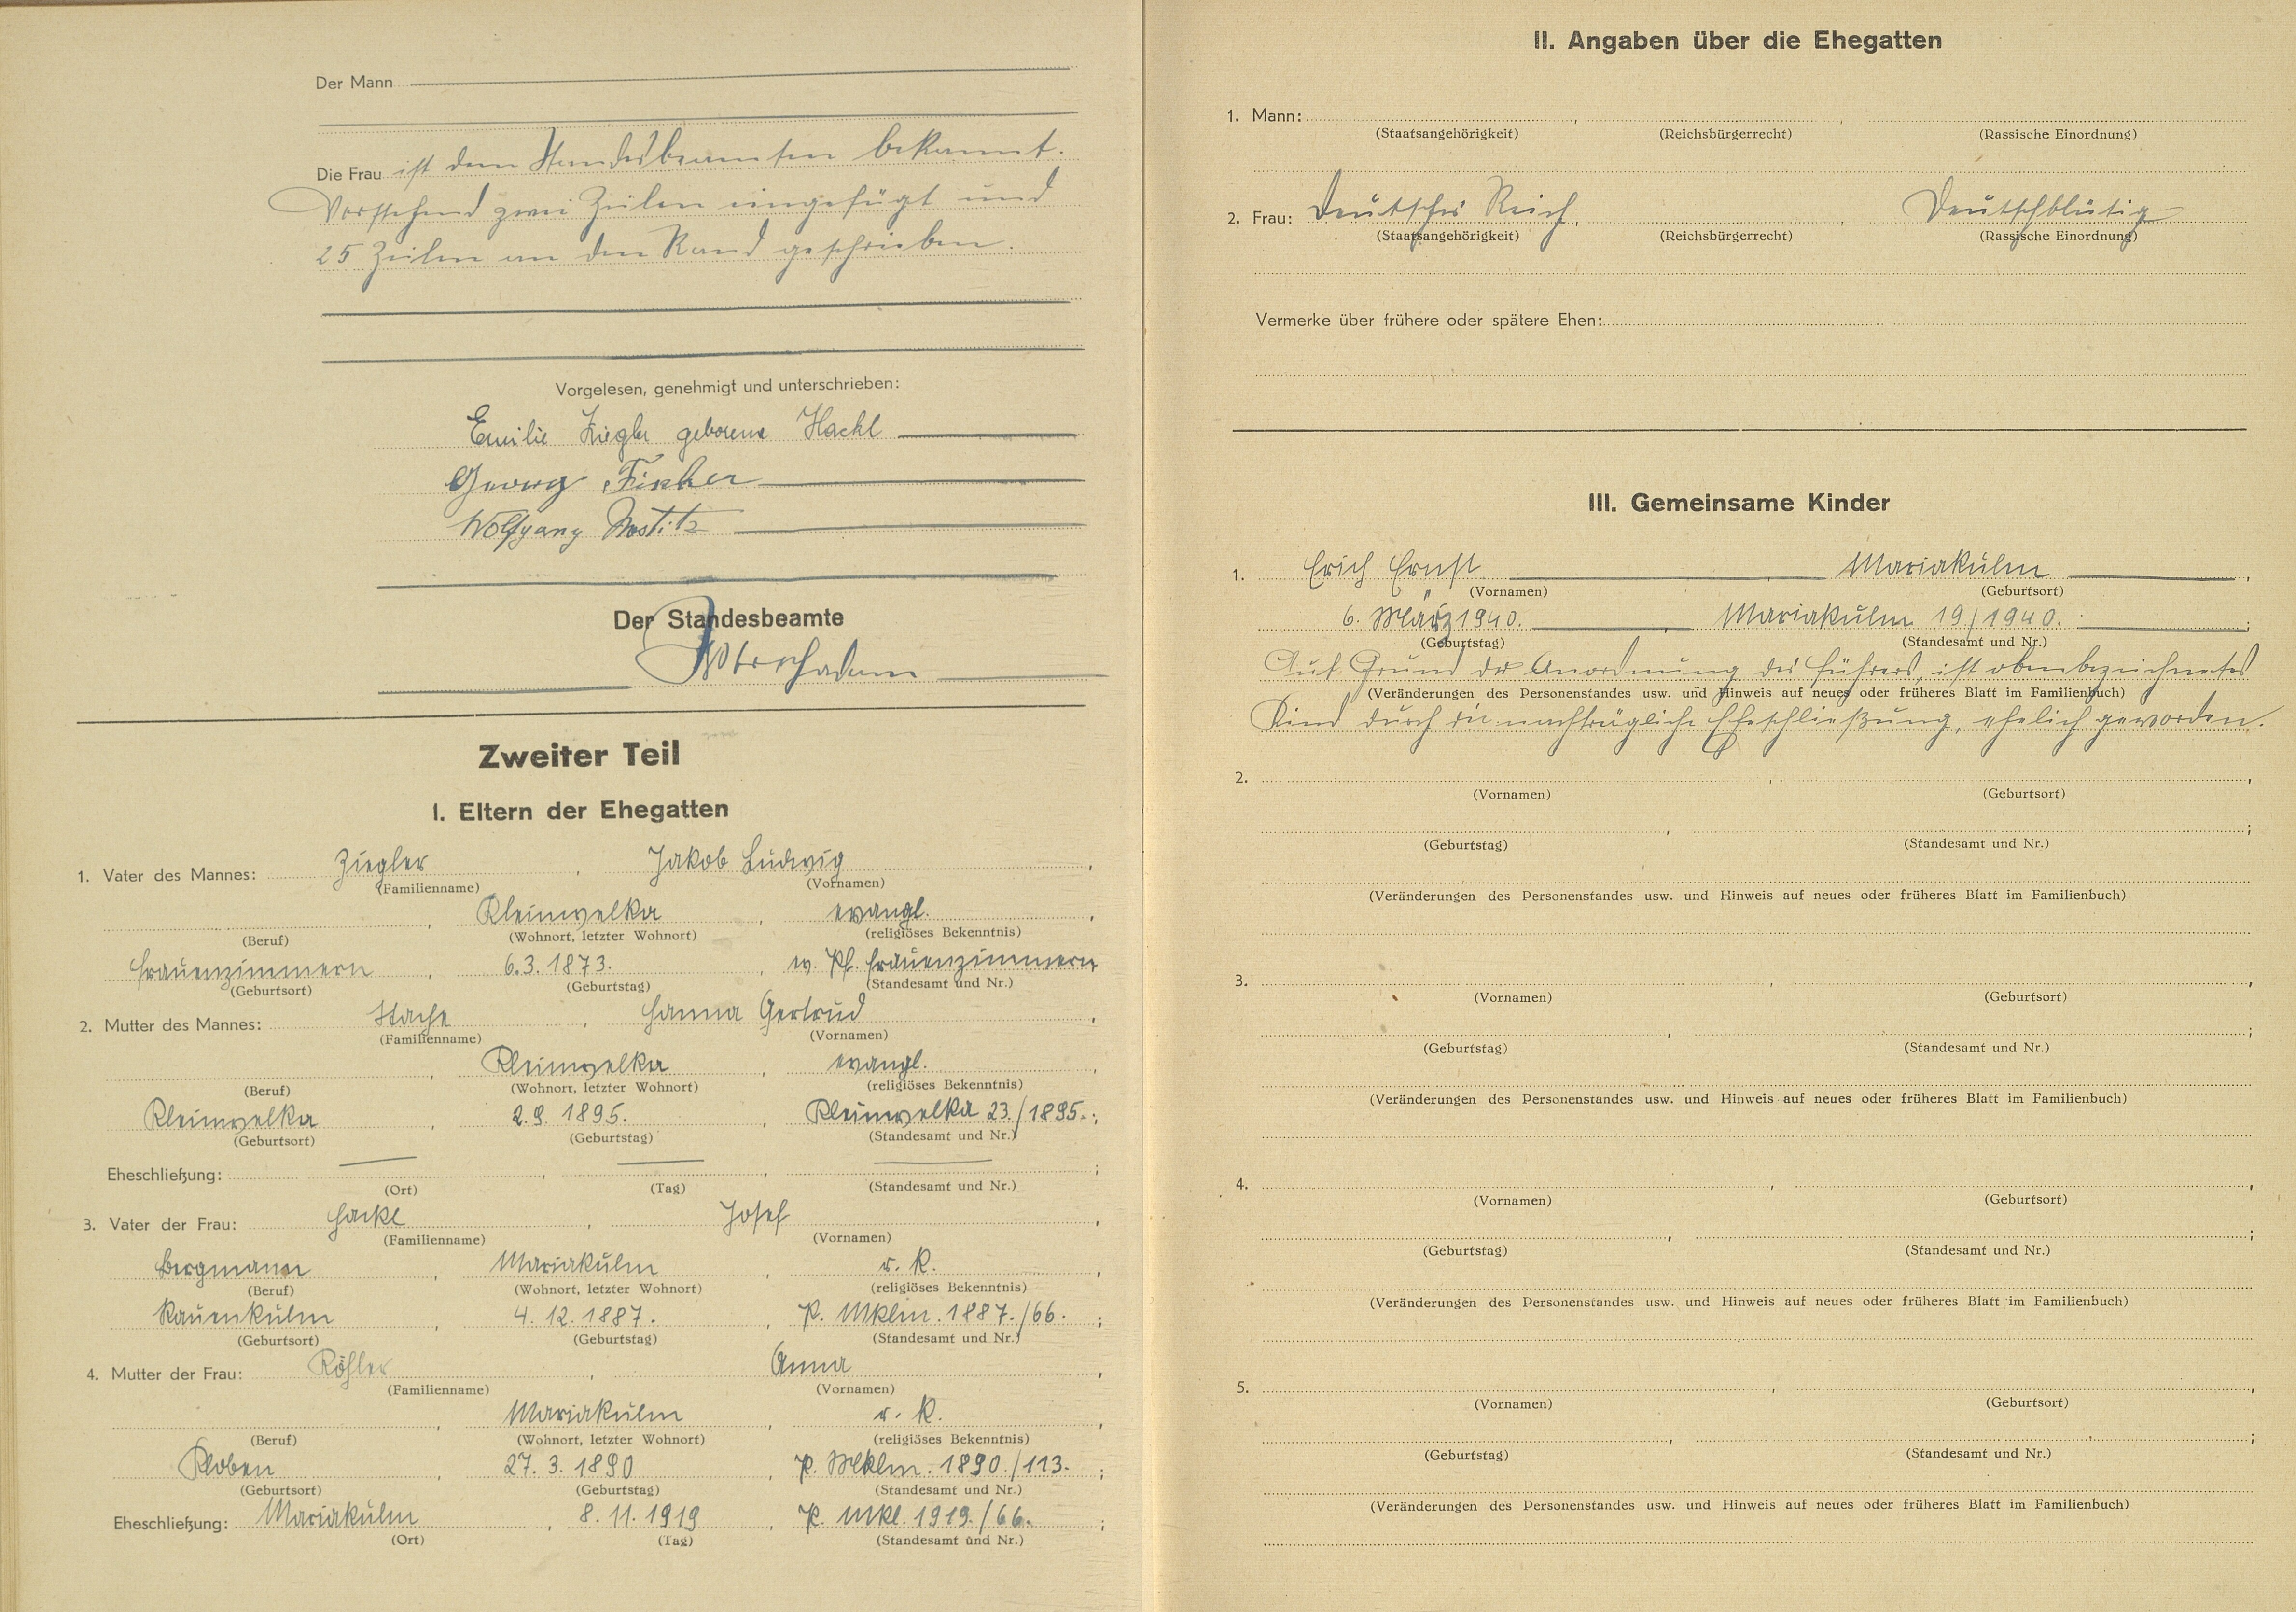 Der Mann
Die Frau ist dem Standesbeamten bekannt.
Vorstehend zwei Zeilen eingefügt und
25 Zeilen an den Rand geschrieben.
Vorgelesen, genehmigt und unterschrieben:
Emilie Ziegler geborene Hackl
Georg Fischer
Wolfgang Nostitz
Der Standesbeamte
Zweiter Teil
I. Eltern der Ehegatten
1. Vater des Mannes: Ziegler, Jakob Ludwig,
(Familienname) (Vornamen)
, Kleinwelka, evangl.,
(Beruf) (Wohnort, letzter Wohnort) (religiöses Bekenntnis)
Frauenzimmern, 6.3.1873., w. Pf. Frauenzimmern
(Geburtsort) (Geburtstag) (Standesamt und Nr.)
2. Mutter des Mannes: Stache, Hanna Gertrud,
(Familienname) (Vornamen)
, Kleinwelka, evangl.,
(Beruf) (Wohnort, letzter Wohnort) (religiöses Bekenntnis)
Kleinwelka, 2.9.1895., Kleinwelka 23./1895.;
(Geburtsort) (Geburtstag) (Standesamt und Nr.)
Eheschließung: —, —, —;
(Ort) (Tag) (Standesamt und Nr.)
3. Vater der Frau: Hackl, Josef,
(Familienname) (Vornamen)
Bergmann, Mariakulm, r. k.,
(Beruf) (Wohnort, letzter Wohnort) (religiöses Bekenntnis)
Rauenkulm, 4.12.1887., P. Mklm. 1887./66.;
(Geburtsort) (Geburtstag) (Standesamt und Nr.)
4. Mutter der Frau: Röhler, Anna,
(Familienname) (Vornamen)
, Mariakulm, r. k.,
(Beruf) (Wohnort, letzter Wohnort) (religiöses Bekenntnis)
Kloben, 27.3.1890, P. Mklm. 1890./113.;
(Geburtsort) (Geburtstag) (Standesamt und Nr.)
Eheschließung: Mariakulm, 8.11.1919, P. Mkl. 1919./66.;
(Ort) (Tag) (Standesamt und Nr.)
II. Angaben über die Ehegatten
1. Mann: , ,
(Staatsangehörigkeit) (Reichsbürgerrecht) (Rassische Einordnung)
2. Frau: Deutsches Reich, , Deutschblütig
(Staatsangehörigkeit) (Reichsbürgerrecht) (Rassische Einordnung)
Vermerke über frühere oder spätere Ehen:
III. Gemeinsame Kinder
1. Erich Ernst, Mariakulm,
(Vornamen) (Geburtsort)
6. März 1940., Mariakulm 19/1940.;
(Geburtstag) (Standesamt und Nr.)
Auf Grund der Anordnung des Führers, ist obenbezeichnetes
(Veränderungen des Personenstandes usw. und Hinweis auf neues oder früheres Blatt im Familienbuch)
Kind durch die nachträgliche Eheschließung, ehelich geworden.
2. , ,
(Vornamen) (Geburtsort)
, ;
(Geburtstag) (Standesamt und Nr.)
(Veränderungen des Personenstandes usw. und Hinweis auf neues oder früheres Blatt im Familienbuch)
3. , ,
(Vornamen) (Geburtsort)
, ;
(Geburtstag) (Standesamt und Nr.)
(Veränderungen des Personenstandes usw. und Hinweis auf neues oder früheres Blatt im Familienbuch)
4. , ,
(Vornamen) (Geburtsort)
, ;
(Geburtstag) (Standesamt und Nr.)
(Veränderungen des Personenstandes usw. und Hinweis auf neues oder früheres Blatt im Familienbuch)
5. , ,
(Vornamen) (Geburtsort)
, ;
(Geburtstag) (Standesamt und Nr.)
(Veränderungen des Personenstandes usw. und Hinweis auf neues oder früheres Blatt im Familienbuch)